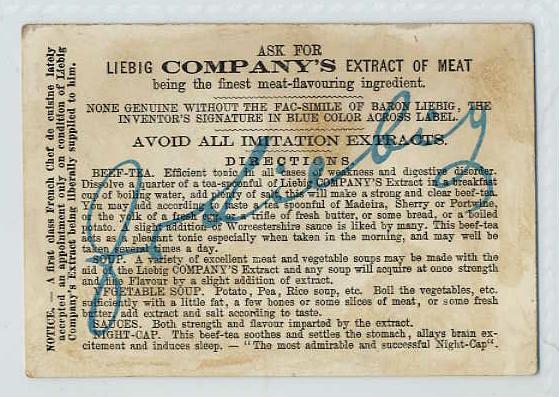 ASK FOR
LIEBIG COMPANY'S EXTRACT OF MEAT
being the finest meat-flavouring ingredient.
NONE GENUINE WITHOUT THE FAC-SIMILE OF BARON LIEBIG, THE
INVENTOR'S SIGNATURE IN BLUE COLOR ACROSS LABEL.
AVOID ALL IMITATION EXTRACTS.
DIRECTIONS.
BEEF-TEA. Efficient tonic in all cases of weakness and digestive disorder.
Dissolve a quarter of a tea-spoonful of Liebig COMPANY'S Extract in a breakfast
cup of boiling water, add plenty of salt, this will make a strong and clear beef-tea.
You may add according to taste a tea-spoonful of Madeira, Sherry or Portwine,
or the yolk of a fresh egg, or a trifle of fresh butter, or some bread, or a boiled
potato. A slight addition of Worcestershire sauce is liked by many. This beef-tea
is as a pleasant tonic especially when taken in the morning, and may well be
taken several times a day.
SOUP. A variety of excellent meat and vegetable soups may be made with the
aid of the Liebig COMPANY'S Extract and any soup will acquire at once strength
and fine Flavour by a slight addition of extract.
VEGETABLE SOUP. Potato, Pea, Rice soup, etc. Boil the vegetables, etc.
sufficiently with a little fat, a few bones or some slices of meat, or some fresh
butter, add extract and salt according to taste.
SAUCES. Both strength and flavour imparted by the extract.
NIGHT-CAP. This beef-tea soothes and settles the stomach, allays brain ex-
citement and induces sleep. — "The most admirable and successful Night-Cap".
NOTICE. — A first class French Chef de cuisine lately
accepted an appointment only on condition of Liebig
Company's Extract being liberally supplied to him.
J v Liebig